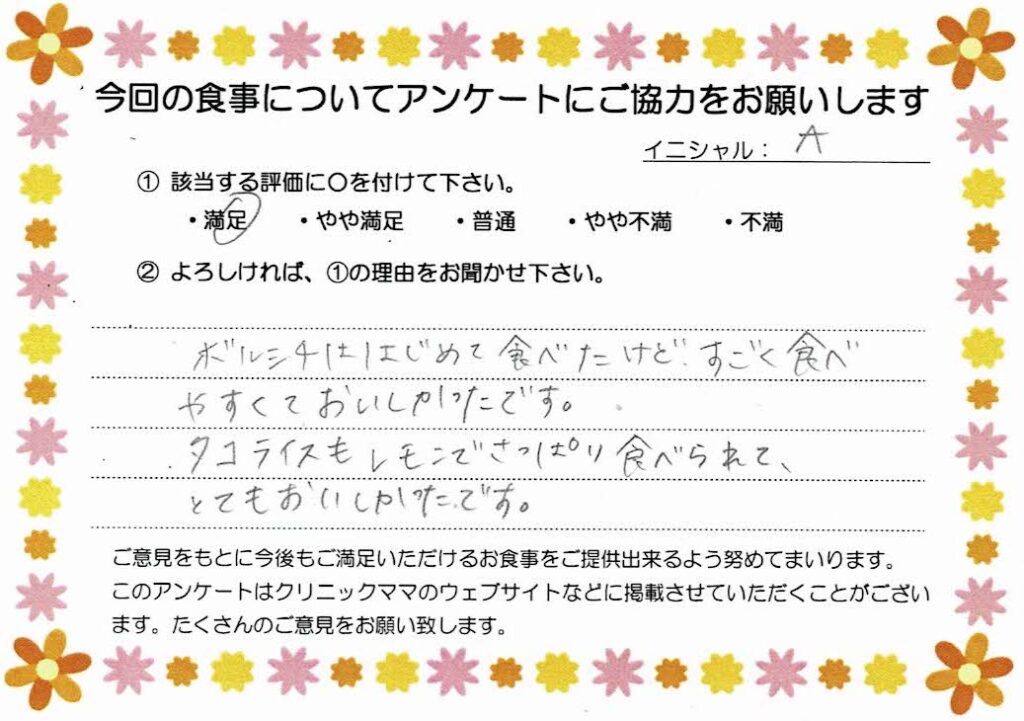 今回の食事についてアンケートにご協力をお願いします
イニシャル： A
① 該当する評価に〇を付けて下さい。
・満足 ・やや満足 ・普通 ・やや不満 ・不満
② よろしければ、①の理由をお聞かせ下さい。
ボルシチははじめて食べたけど、すごく食べ
やすくておいしかったです。
タコライスもレモンでさっぱり食べられて、
とてもおいしかったです。
ご意見をもとに今後もご満足いただけるお食事をご提供出来るよう努めてまいります。
このアンケートはクリニックママのウェブサイトなどに掲載させていただくことがござい
ます。たくさんのご意見をお願い致します。